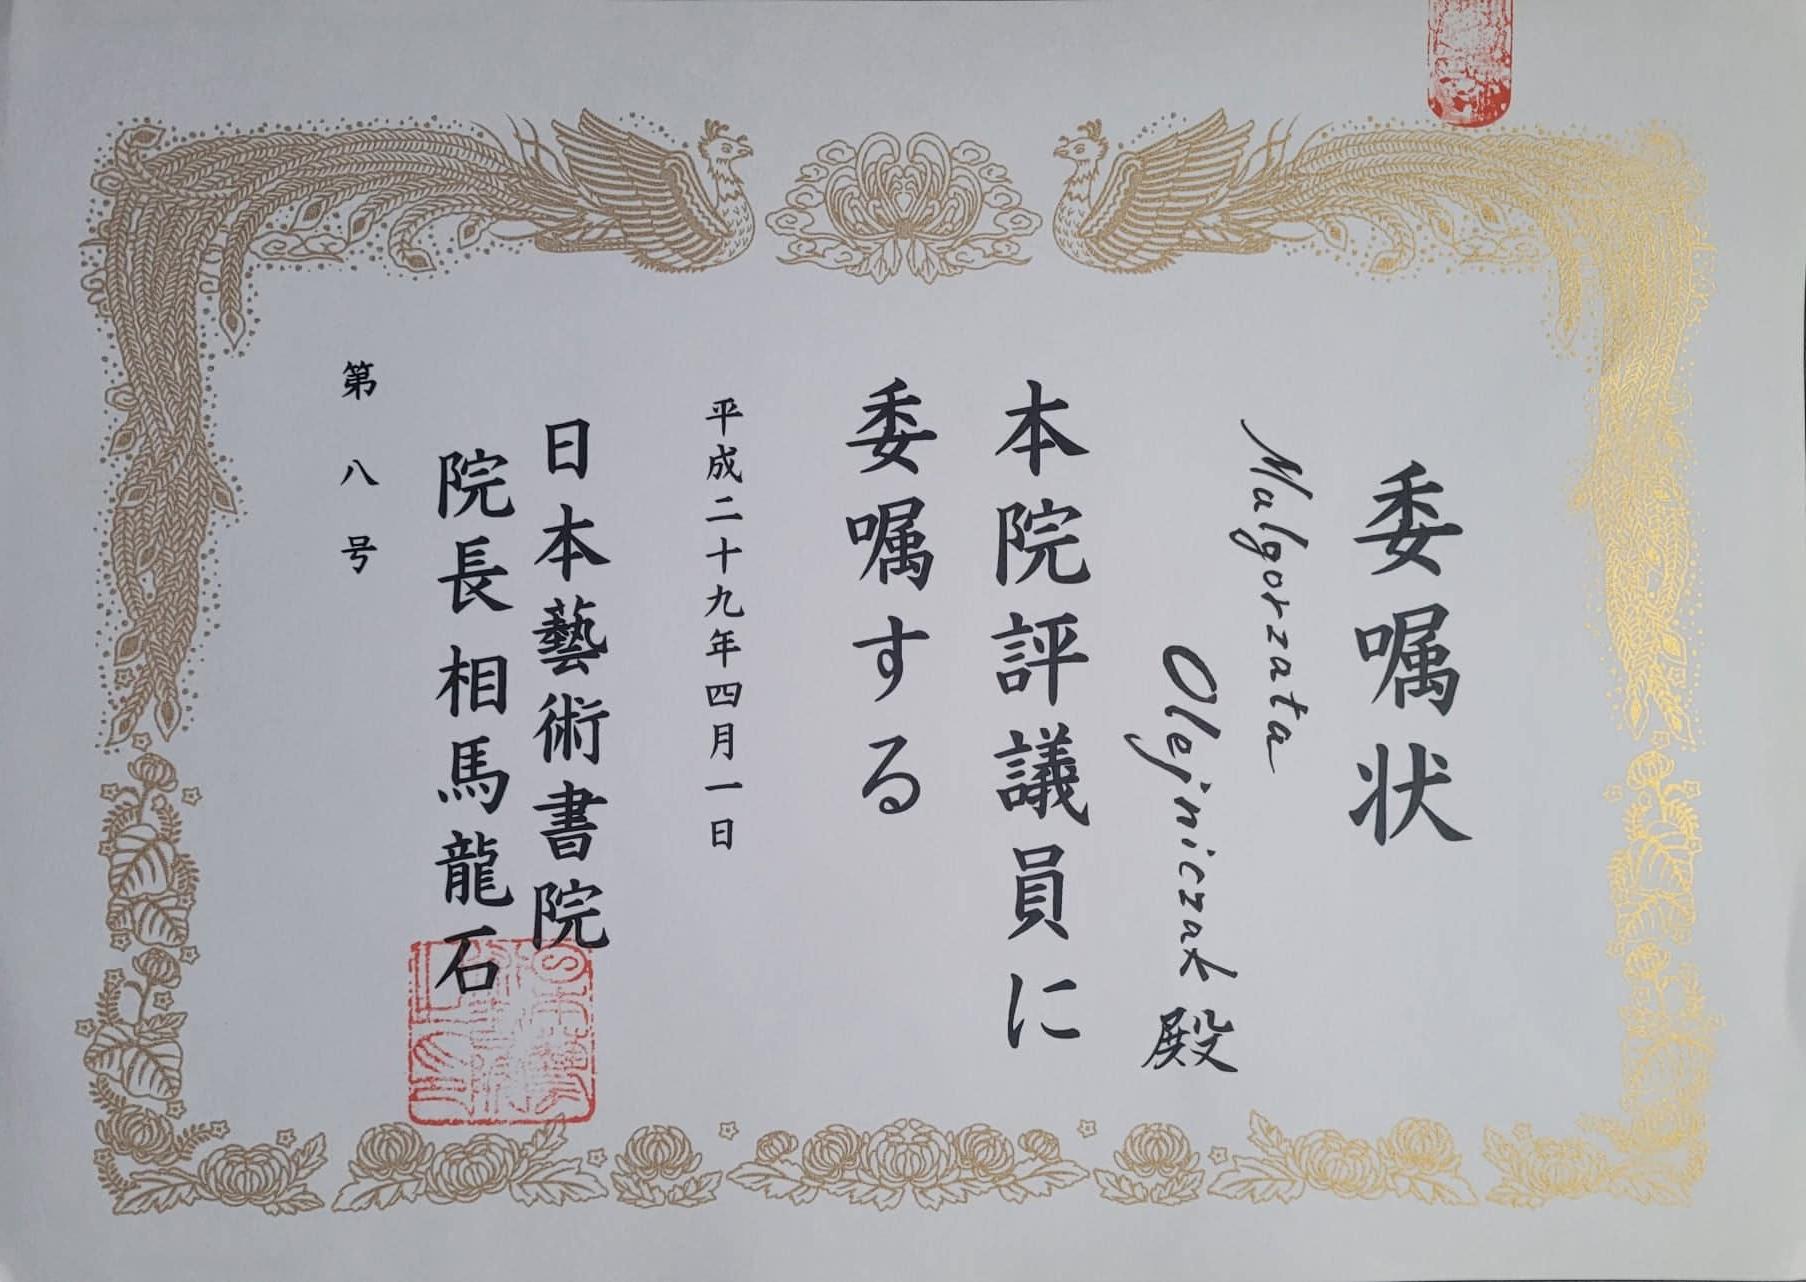 委嘱状
Malgorzata
Olejniczak 殿
本院評議員に
委嘱する
平成二十九年四月一日
日本藝術書院
院長相馬龍石
第八号